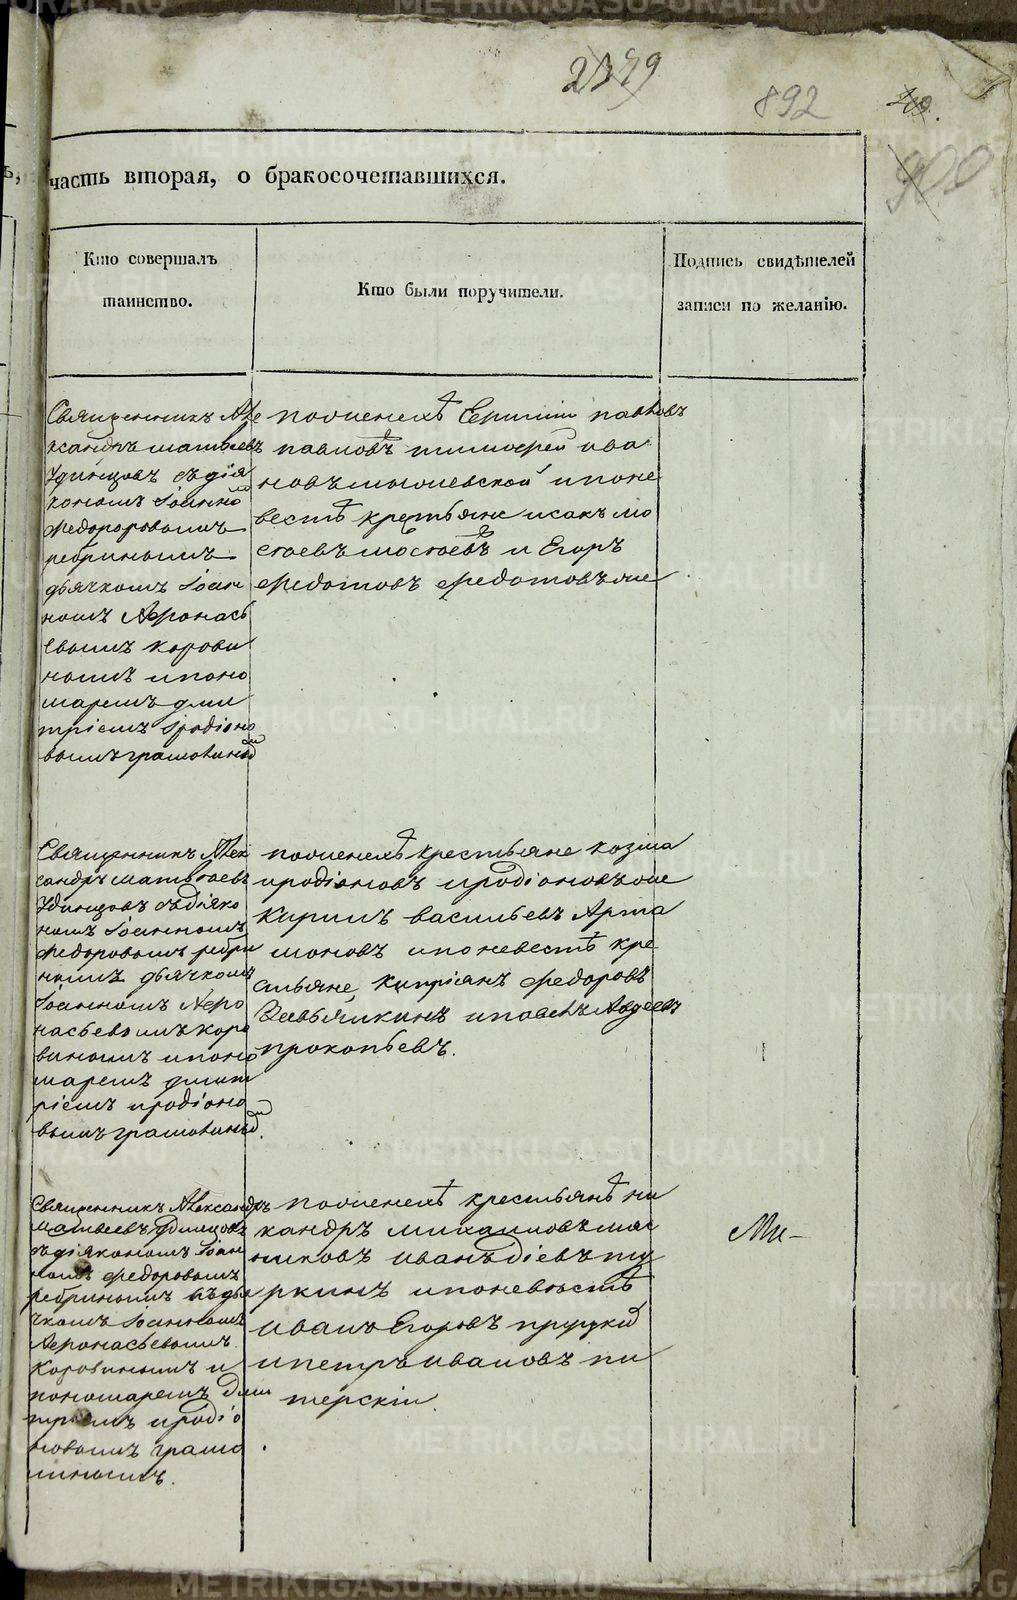 892
часть вторая, о бракосочетавшихся.
Кто совершалъ
таинство.
Кто были поручители.
Подпись свидѣтелей
записи по желанію.
Священникъ Але
ксандръ матвѣевъ
Удинцовъ съ дія
кономъ Іоанно
Федоровомъ
ребринымъ
дьячкомъ Іоан
номъ Афонась
евымъ корови
нымъ и поно
маремъ дми
тріемъ Іродіоно
вымъ
по женихѣ павловъ
павловъ тимофей ива
новъ и по не
вестѣ крестьяне исакъ мо
сѣевъ мосѣевъ и Егоръ
Федотовъ Федотовъ же
Священникъ Алек
сандръ матвѣевъ
Удинцовъ съ діако
номъ Іоанномъ
Федоровымъ ребри
нымъ дьячкомъ
Іоанномъ Афо
насьевымъ коро
винымъ и поно
маремъ дмит
ріемъ иродіоно
вымъ
по женихѣ крестьяне козма
иродіоновъ иродіоновъ же
Кирилъ васильевъ Арта
моновъ и по невестѣ кре
стьяне Кипріянъ Федоровъ
и павелъ Авдѣевъ
прокопьевъ.
Священникъ Александръ
матвеевъ Удинцовъ
съ діякономъ Іоан
номъ Федоровымъ
ребринымъ съ дья
чкомъ Іоанномъ
Афонасьевымъ
Коровинымъ и
пономаремъ дми
тріемъ иродіо
новымъ
по женихѣ крестьянѣ ни
кандръ михаиловъ мяс
никовъ иванъ діевъ ту
ркинъ и по невѣстѣ
иванъ Егоровъ
и петръ ивановъ пи
терскій.
METRIKI.GASO-URAL.RU